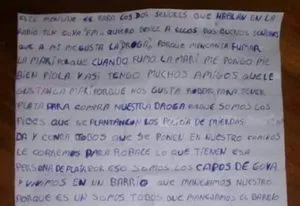 ESTE MENSAJE ES PARA LOS DOS SEÑORES QUE HABLAN EN LA
RADIO QUIERO DECIR A ELLOS DOS BUENOS SEÑORES
QUE A MI ME GUSTA LA DROGA PORQUE MENCANTA FUMAR
LA MARI PORQUE CUANDO FUMO LA MARI ME PONGO ME
BIEN PIOLA Y ASI TENGO MUCHOS AMIGOS QUE LE
GUSTAN LA MARI PORQUE NOS GUSTA ROBAR PARA TENER
PLATA PARA COMPRA NUESTRA DROGA PORQUE SOMOS LOS
PIBES QUE SE PLANTAN CON LOS POLICIA DE MIERDAS
DA Y CONTRA TODOS QUE SE PONEN EN NUESTRO
LE CORREMOS PARA ROBARLE LO QUE TIENEN ESA
PERSONA DE ESO SOMOS LOS CAPOS DE GOYA
Y VIVIMOS EN UN BARRIO QUE MANEJAMOS NUESTRO
PORQUE ES UN SOMOS TODOS QUE MANEJAMOS EL BARRIO